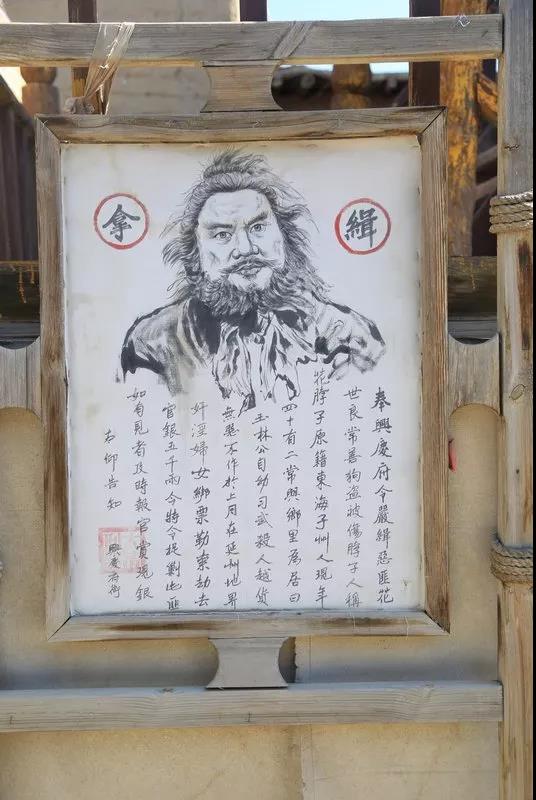 緝拿
奉興慶府令嚴緝惡匪花
世良常善狗盜被傷脖子人稱
花脖子原籍東海子州人現年
四十有二常興鄉里為居曰
玉林公自幼习武殺人越货
無惡不作於上月在延州地界
奸淫婦女綁票勒索劫去
官銀五千兩今特令捉剿此匪
如有見者及時報官賞現銀
右仰告知
興慶府衙